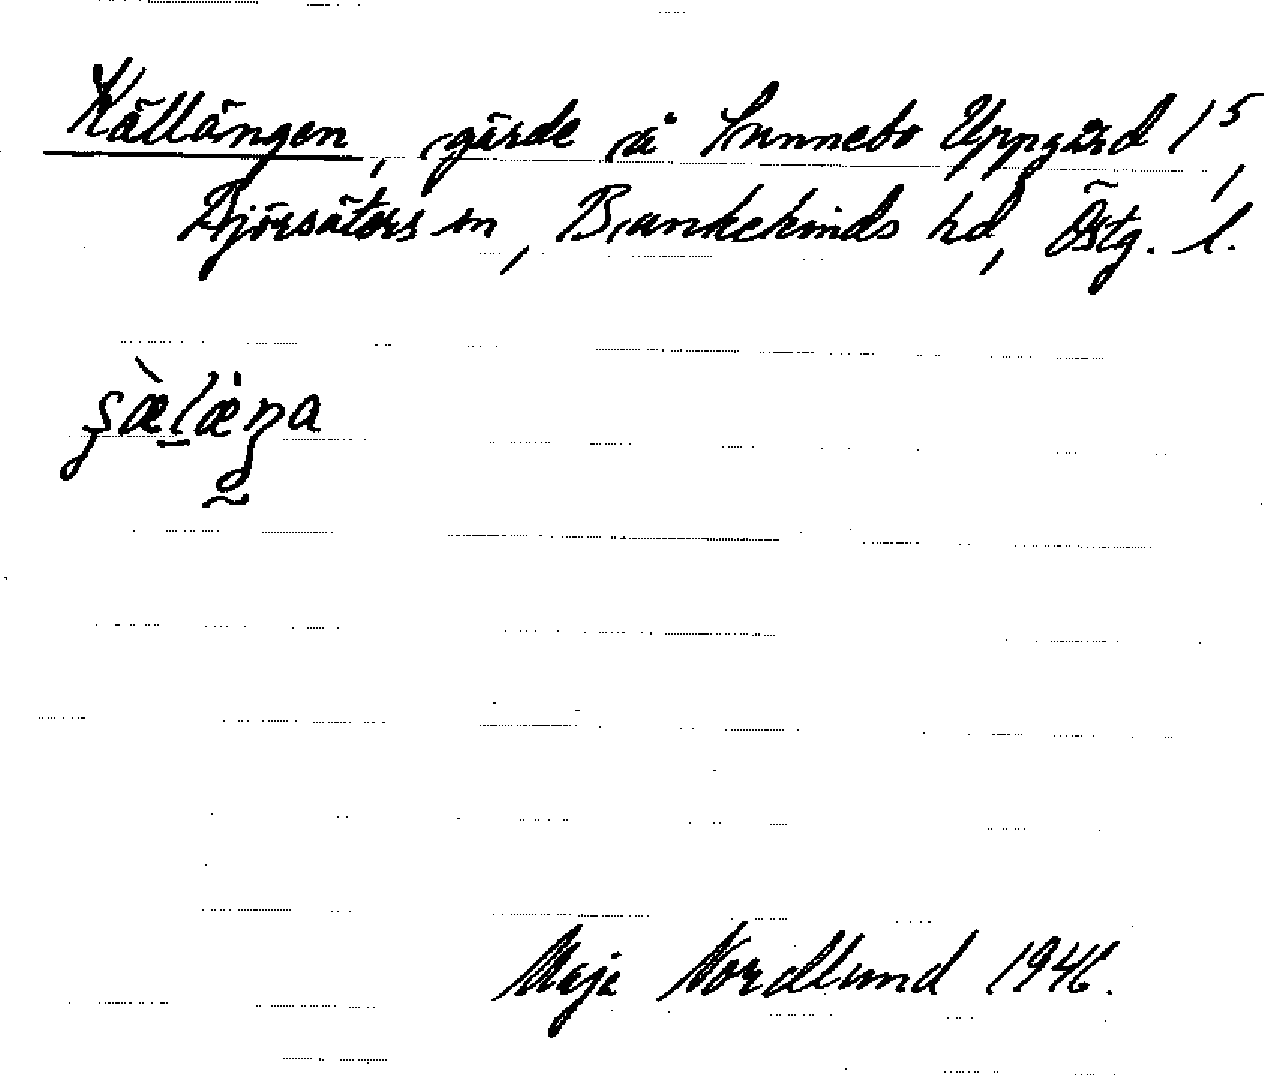 Källängen, gärde å Sunnebo Uppgård 1⁵,
Björsäters sn, Bankekinds hd, Östg. l.
Maja Nordlund 1946.